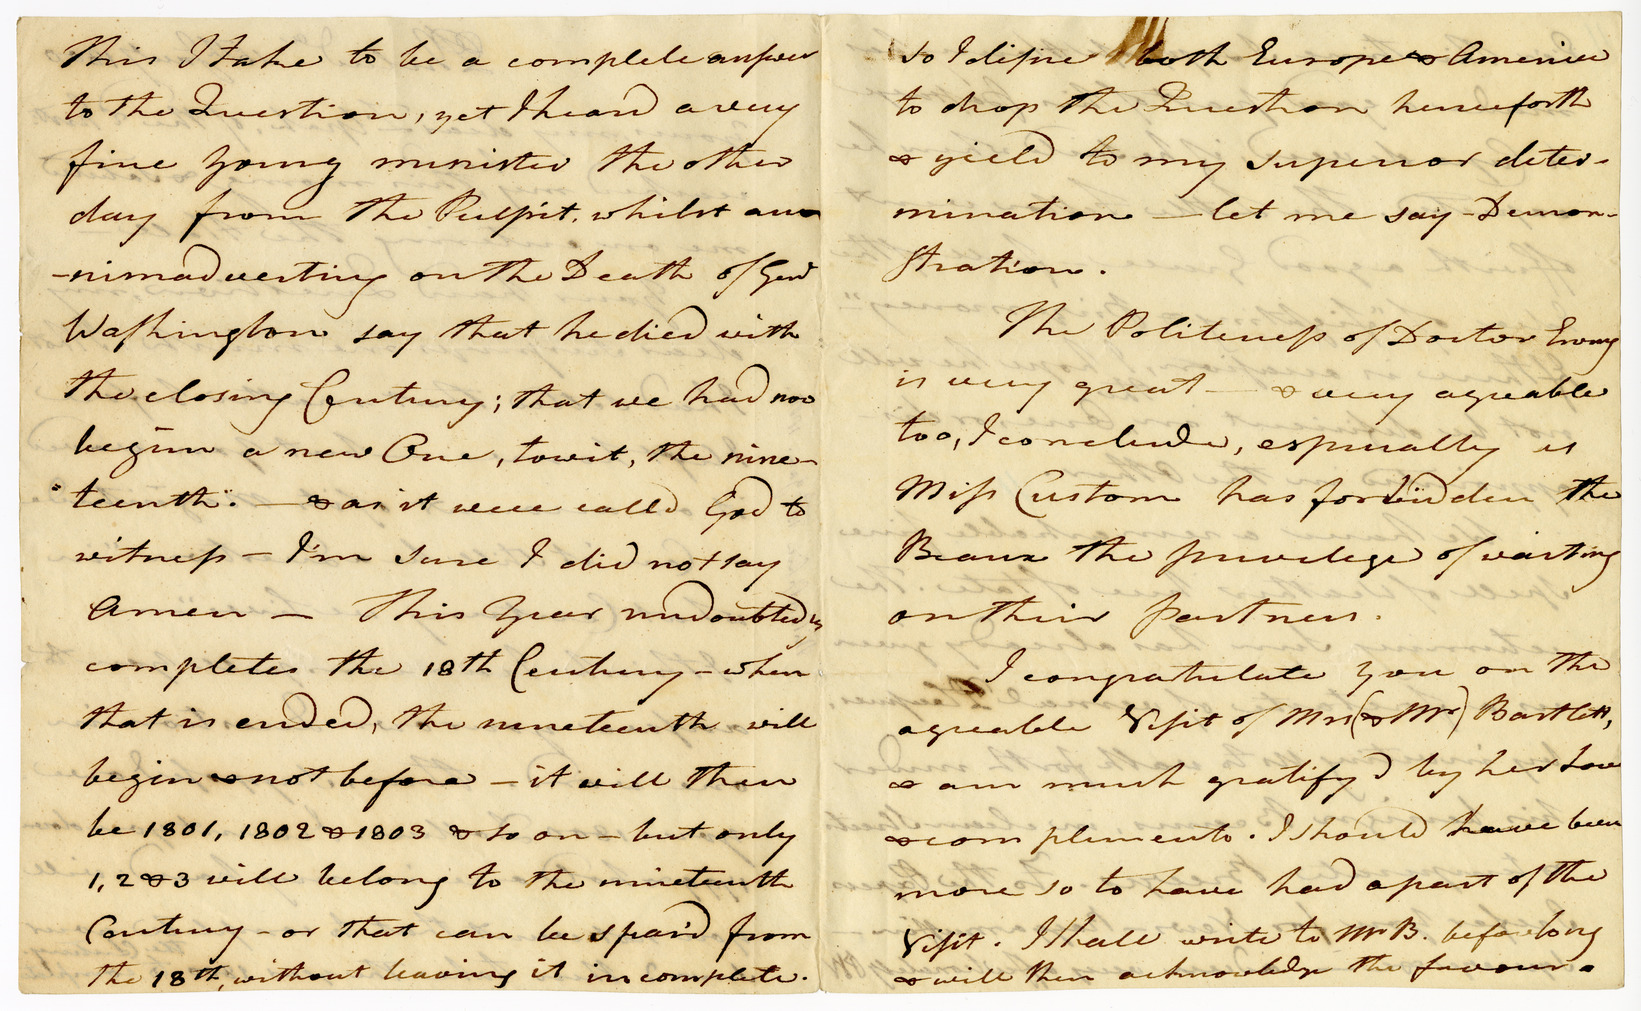 This I take to be a complete answer
to the Question, yet I heard a very
fine young minister the other
day from the Pulpit, whilst an
-nimadverting on the Death of Genl
Washington say that he died with
the closing Century; that we had now
begun a new One, towit, the nine-
"teenth". — & as it were calld God to
witness — I'm sure I did not say
Amen — This Year undoubtedly
completes the 18th Century – when
that is ended, the nineteenth will
begin & not before – it will then
be 1801, 1802 & 1803 & so on – but only
1, 2 & 3 will belong to the nineteenth
Century – or that can be spar'd from
the 18th, without leaving it incomplete.
so I desire both Europe & America
to drop the Question henceforth
& yield to my superior deter-
mination — let me say – Demon-
stration.
The Politeness of Doctor
is very great — & very agreable
too, I conclude, especially as
Miss Custom has forbidden the
Beaux the privelege of waiting
on their partners.
I congratulate you on the
agreable Visit of Mrs (& Mr) Bartlett,
& am much gratify'd by her Love
& compliments. I should have been
more so to have had a part of the
Visit. I shall write to Mr B. before long
& will then acknowledge the favour.